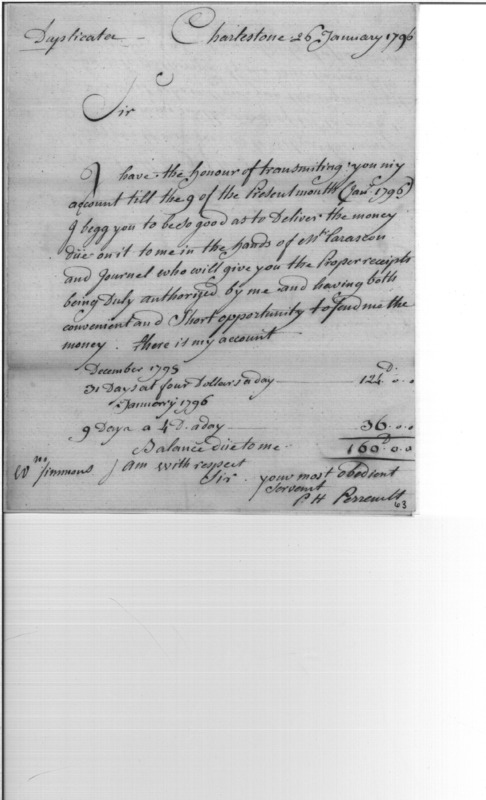 Duplicate — Charlestone 26 January 1796
Sir
I have the honour of transmiting you my
account till the 9 of the Present month (Jan. 1796)
I begg you to be so good as to Deliver the money
due on it to me in the hands of Mr. Carascou
and Journel who will give you the Proper receipts
being Duly authorized by me and having both
convenient and Short opportunity to Send me the
money. there is my account
December 1795 D.
31 Days at four Dollars a day — 124 .0.0
January 1796
9 Days a 4 D. a day — 36 .0.0
Balance due to me 160 D. 0.0
Wm Simmons I am with respect
Sir your most obedient
Servent
P H Perrault
63